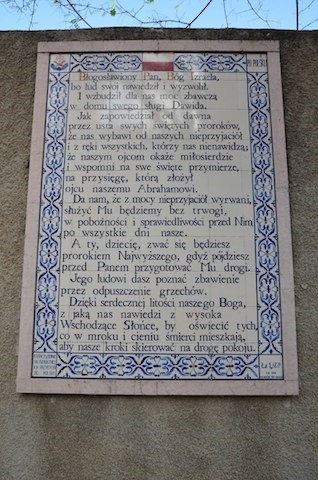 PO POLSKU
Błogosławiony Pan, Bóg Izraela,
bo lud swój nawiedził i wyzwolił.
I wzbudził dla nas moc zbawczą
w domu swego sługi Dawida.
Jak zapowiedział to z dawna
przez usta swych świętych proroków,
że nas wybawi od naszych nieprzyjaciół
i z ręki wszystkich, którzy nas nienawidzą;
że naszym ojcom okaże miłosierdzie
i wspomni na swe święte przymierze,
na przysięgę, którą złożył
ojcu naszemu Abrahamowi.
Da nam, że z mocy nieprzyjaciół wyrwani,
służyć Mu będziemy bez trwogi,
w pobożności i sprawiedliwości przed Nim
po wszystkie dni nasze.
A ty, dziecię, zwać się będziesz
prorokiem Najwyższego, gdyż pójdziesz
przed Panem przygotować Mu drogi.
Jego ludowi dasz poznać zbawienie
przez odpuszczenie grzechów.
Dzięki serdecznej litości naszego Boga,
z jaką nas nawiedzi z wysoka
Wschodzące Słońce, by oświecić tych,
co w mroku i cieniu śmierci mieszkają,
aby nasze kroki skierować na drogę pokoju.